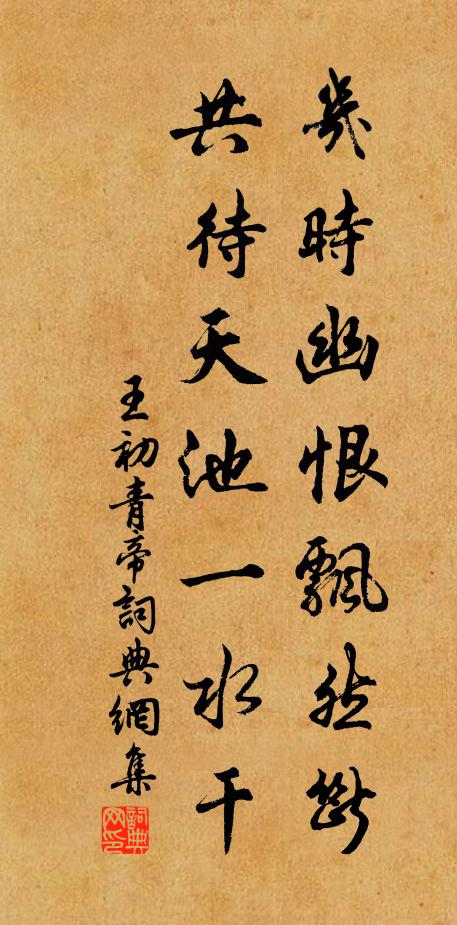 幾時幽恨飄然斷
共待天池一水干
王初青帝詞典網集
詞典网印